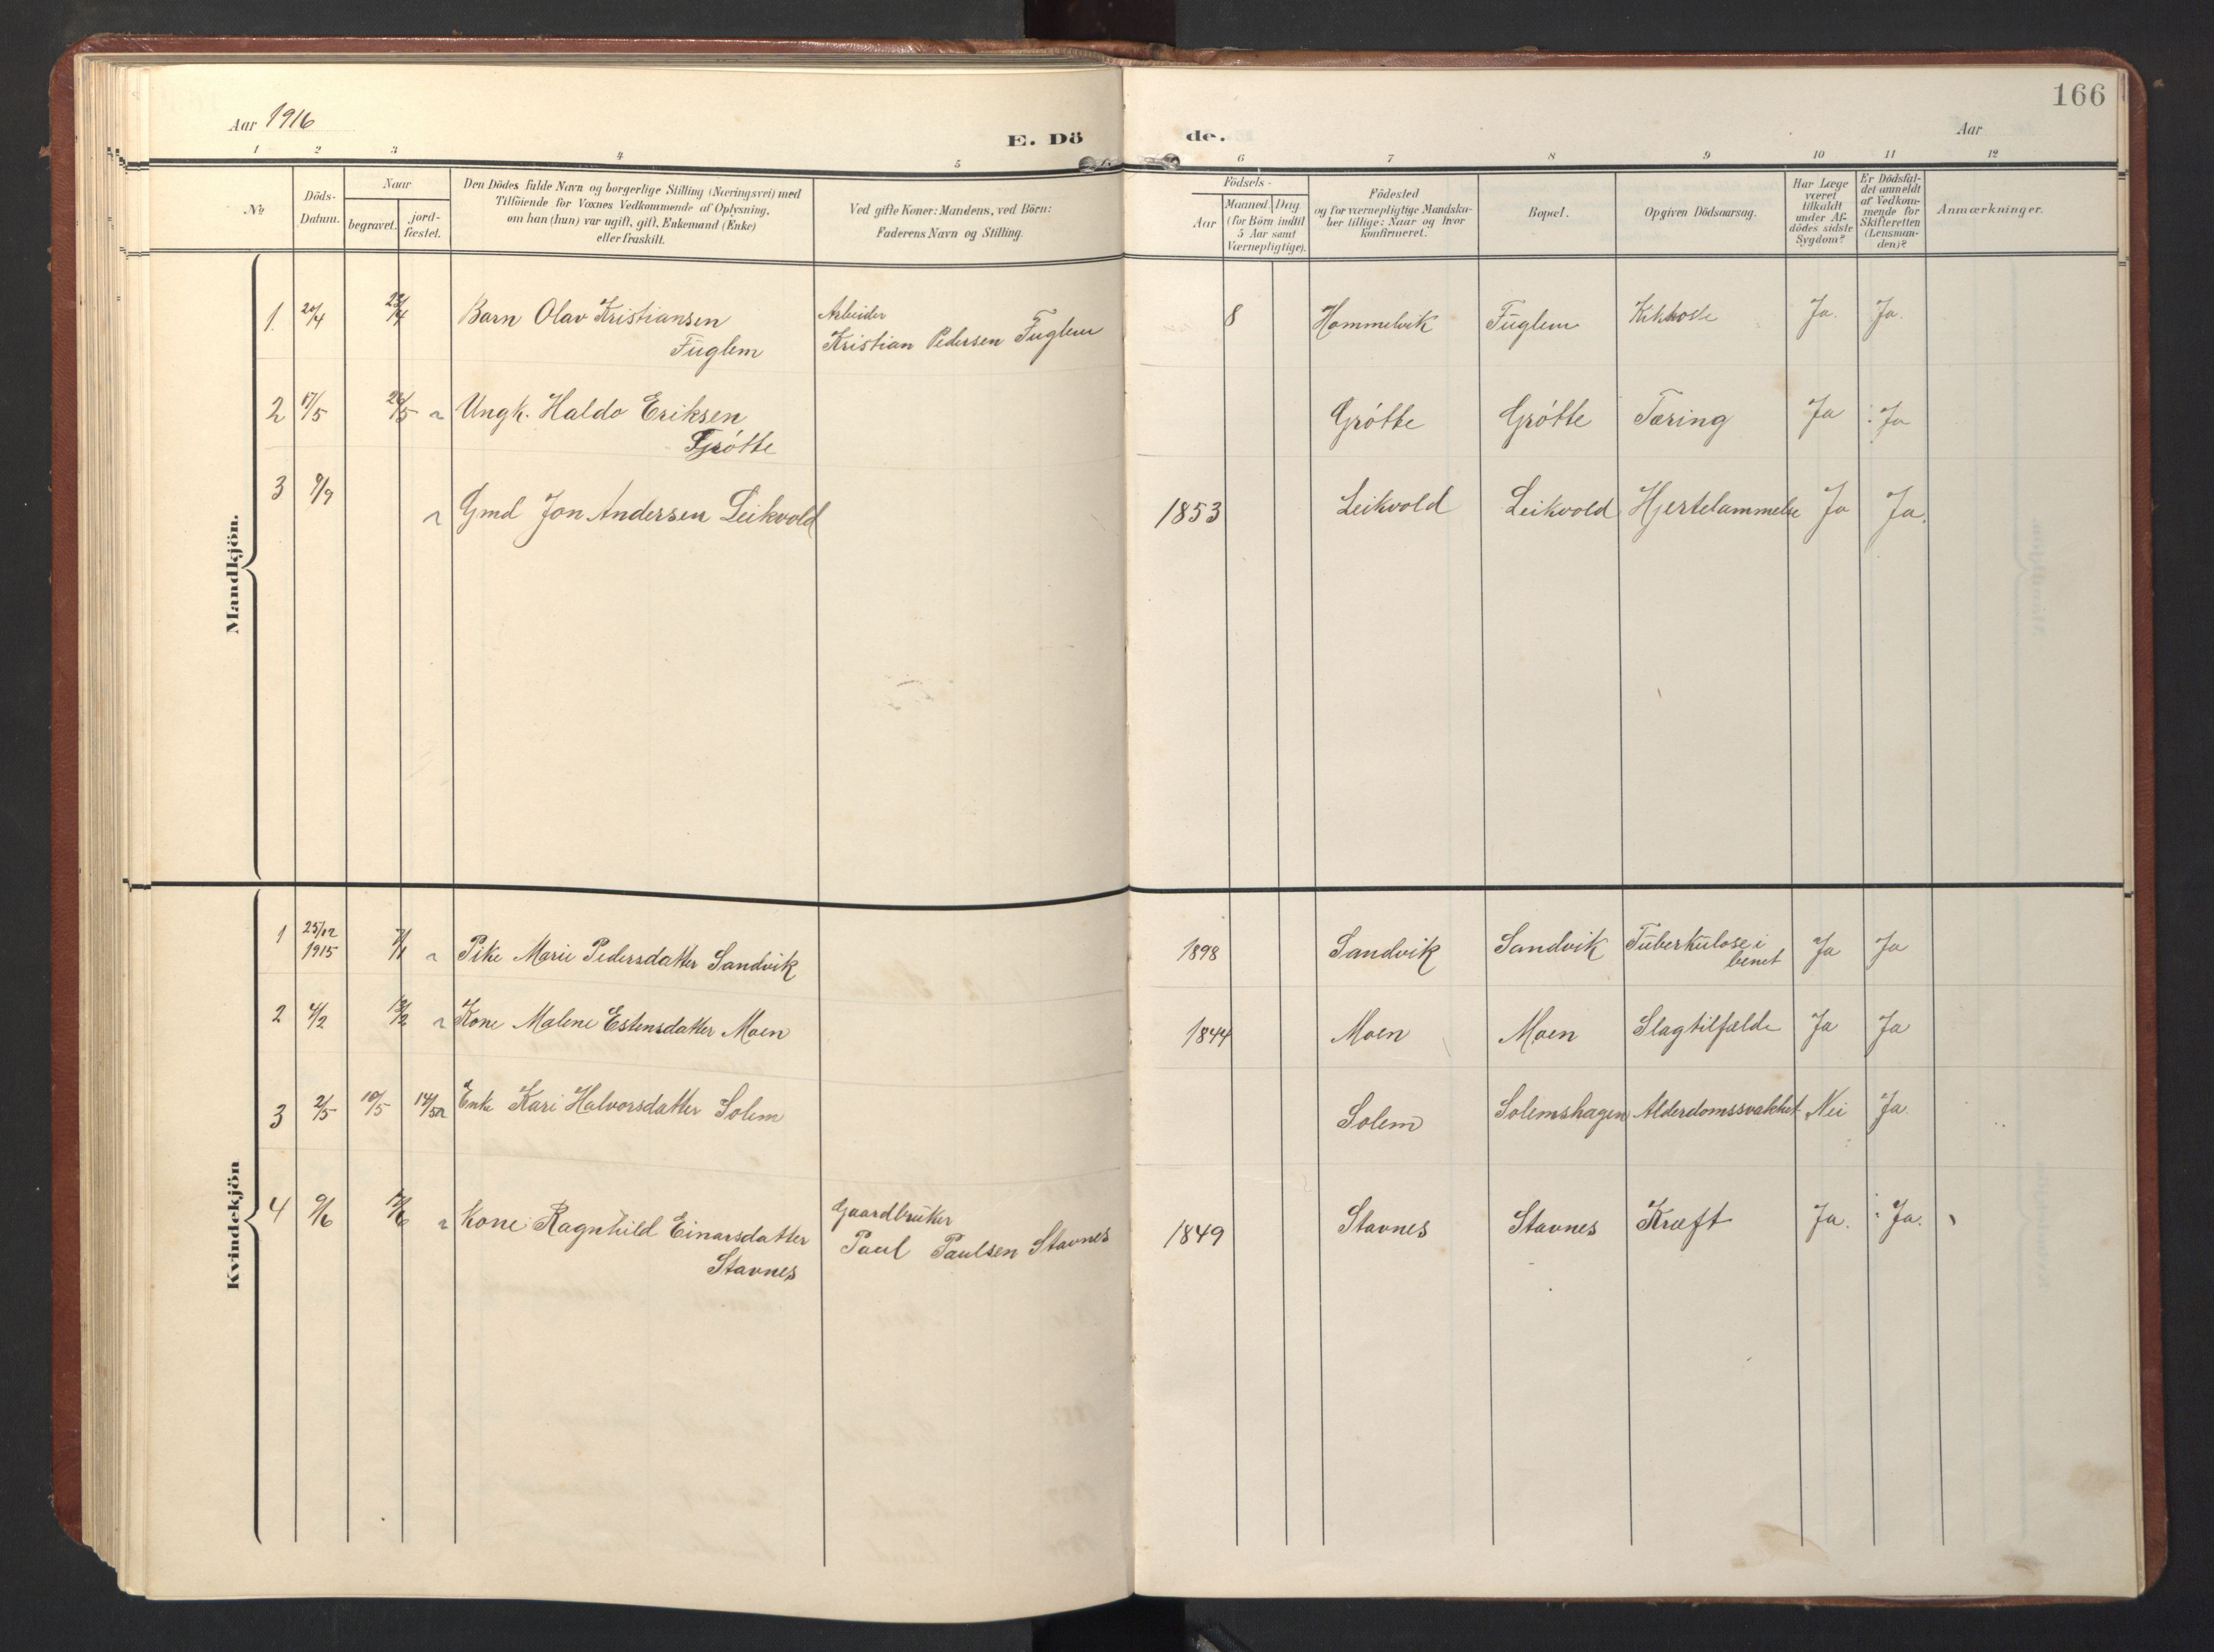 166
Aar 1916
E. Dö
de.
Aar
1 2 3 4 5 6 7 8 9 10 11 12
No
Döds-
Datum.
Naar
begravet.
jord-
fæstet.
Den Dödes fulde Navn og borgerlige Stilling (Næringsvei) med
Tilföiende for Voxnes Vedkommende af Oplysning,
om han (hun) var ugift, gift, Enkemand (Enke)
eller fraskilt.
Ved gifte Koner: Mandens, ved Börn:
Faderens Navn og Stilling.
Födsels-
Aar
Maaned. Dag
(for Börn indtil
5 Aar samt
Værnepligtige).
Födested
og for værnepligtige Mandska-
ber tillige: Naar og hvor
konfirmeret.
Bopæl.
Opgiven Dödsaarsag.
Har Læge
været
tilkaldt
under Af-
dödes sidste
Sygdom?
Er Dödsfal-
det anmeldt
af Vedkom-
mende for
Skifteretten
(Lensman-
den)?
Anmærkninger.
Mandkjön.
1. 20/4 Barn Olav Kristiansen
Fuglem
Arbeider
Kristian Pedersen Fuglem
8 Hommelvik Fuglem Kikhoste Ja. Ja.
2 17/5 Ungk. Haldo Eriksen
Grótte
Grótte Grótte Tæring Ja Ja
3 9/9 Gmd Jon Andersen Leikvold
1853 Leikvold Leikvold Hjertelammelse Ja Ja.
Kvindekjön
1 25/12
1915 Pike Marie Pedersdatter Sandvik
1898 Sandvik Sandvik Tuberkulose i
benet Ja Ja
2 4/2 13/2 Kone Malene Estensdatter Moen
1844 Moen Moen Slagtilfælde Ja Ja
3 2/5 10/5 14/5 Enke Kari Halvorsdatter Solem
Solem Solemshagen Alderdomssvakhet Nei Ja.
4 9/6 Kone Ragnhild Einarsdatter
Stavnes
Gaardbruker
Paul Paulsen Stavnes
1849 Stavnes Stavnes Kræft Ja. Ja.